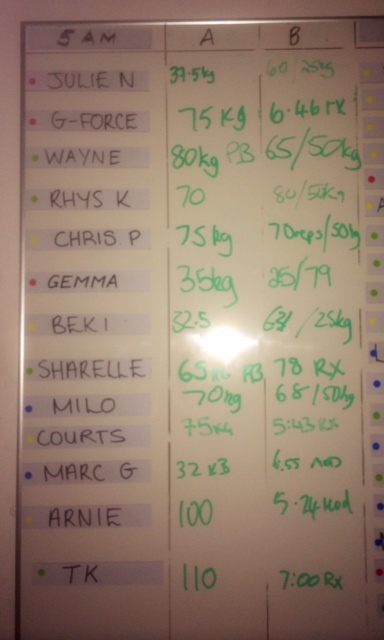 5 AM A B
JULIE N 37.5kg 60/25kg
G-FORCE 75 Kg 6.46 rx
WAYNE 80kg PB 65/50kg
RHYS K 70 80/50kg
CHRIS. P 75kg 70reps/50kg
GEMMA 35kg 25/79
BEKI 32.5 /25kg
SHARELLE 65kg PB 78 RX
MILO 70kg 68/50kg
COURTS 75KG 5:43 RX
MARC G 32 KB 6.55 MOD
ARNIE 100 5.24 Mod
TK 110 7:00 Rx